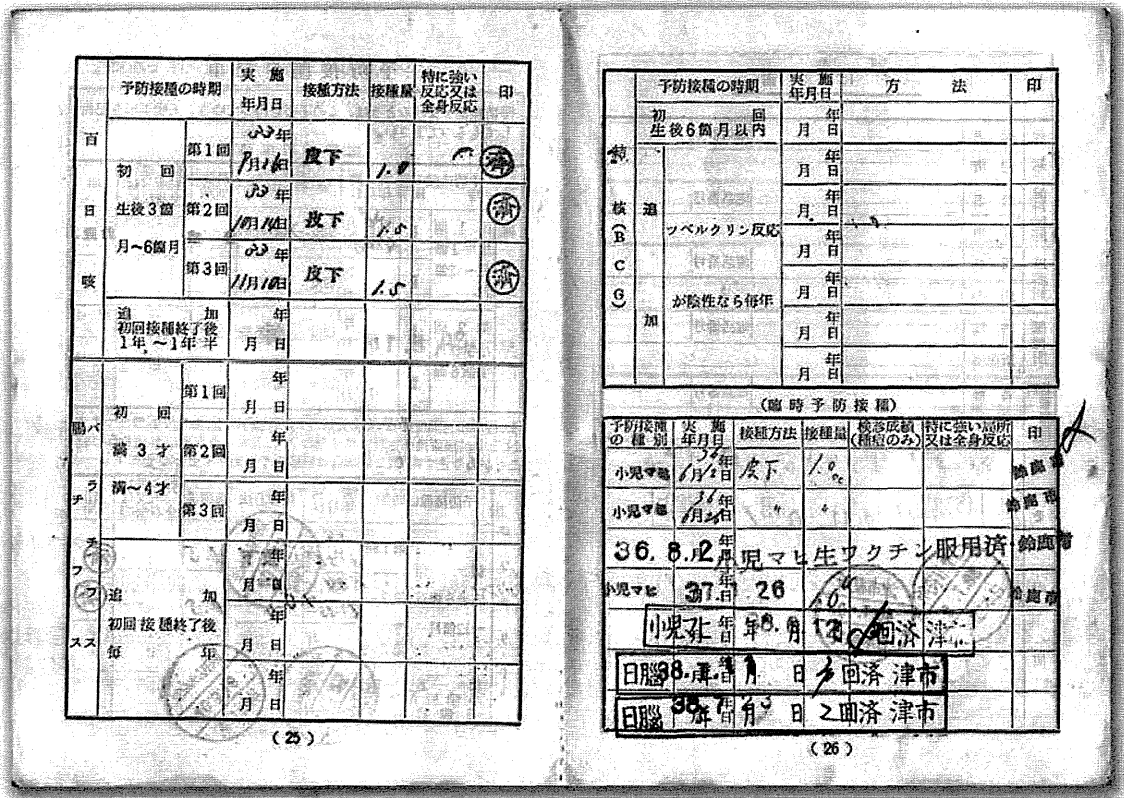 予防接種の時期 実施年月日 接種方法 接種量 特に強い反応又は全身反応 印
百日咳
初回 生後3箇月～6箇月
第1回 33年 月16日 皮下 1.0 済
第2回 33年 10月14日 皮下 1.5 済
第3回 33年 11月10日 皮下 1.5 済
追加 初回接種終了後1年～1年半 年月日
腸チフス パラチフス
初回 満3才 満～4才
第1回 年月日
第2回 年月日
第3回 年月日
追加 初回接種終了後毎年
年月日
年月日
年月日
(25)
予防接種の時期 実施年月日 方法 印
結核(BCG)
初回 生後6箇月以内 年月日
追加 ツベルクリン反応が陰性なら毎年
年月日
年月日
年月日
年月日
年月日
年月日
(臨時予防接種)
予防接種の種別 実施年月日 接種方法 接種量 検診成績(種痘のみ) 特に強い局所又は全身反応 印
小児マヒ 36年 月 日 皮下 1.0cc 鈴鹿市
小児マヒ 36年 月 日 〃 〃 鈴鹿市
36.8.2 小児マヒ生ワクチン服用済 鈴鹿市
小児マヒ 37. 26 鈴鹿市
小児マヒ 年 月 回済 津市
日脳 38.年 月 日 回済 津市
日脳 38.7年 月 日 2回済 津市
(26)